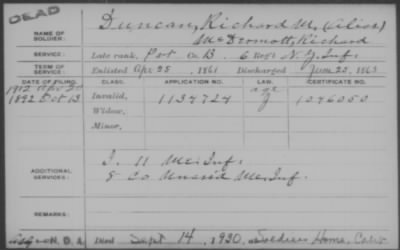 DEAD
NAME OF SOLDIER: Duncan, Richard M. (alias)
McDermott, Richard
SERVICE: Late rank, Pvt Co. B, 6 Reg't N.J. Inf.
TERM OF SERVICE: Enlisted Apr 25, 1861 Discharged June 20, 1863
DATE OF FILING. CLASS. APPLICATION NO. LAW. CERTIFICATE NO.
1912 Apr 20 age
1892 Oct 13 Invalid, 1134724 1096050
Widow,
Minor,
ADDITIONAL SERVICES: I. 11 Me. Inf.
& Co Unassd Me. Inf.
REMARKS:
N. D. A. Died Sept 14, 1930, at Soldiers Home, Calif